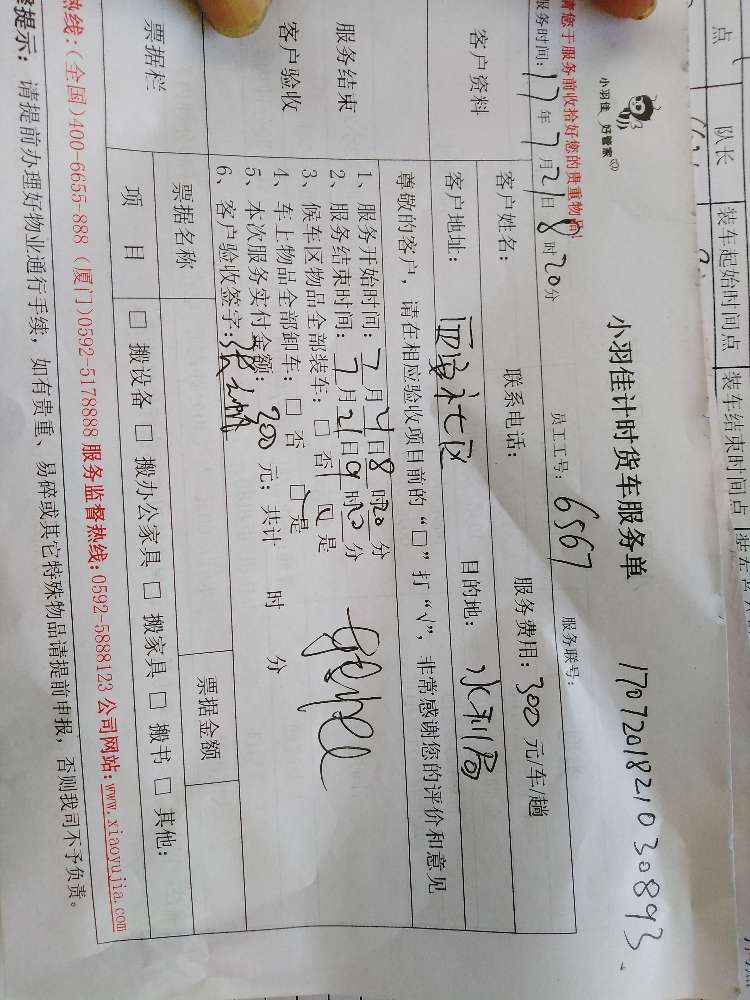 点 队长 装车起始时间点 装车结束时间点
小羽佳 好管家
小羽佳计时货车服务单 170720182103 0893
请您于服务前收拾好您的贵重物品!
员工工号: 6567 服务联号:
服务时间: 17 年 7 月 21 日 8 时 20 分
客户资料
客户姓名: 联系电话: 服务费用: 300 元/车/趟
客户地址: 社区 目的地: 水利局
服务结束
客户验收
尊敬的客户, 请在相应验收项目前的“□”打“√”, 非常感谢您的评价和意见
1、服务开始时间: 7 月 21 日 8 时 20 分
2、服务结束时间: 7 月 21 日 9 时 20 分
3、候车区物品全部装车: □ 否 ☑ 是
4、车上物品全部卸车: □ 否 ☑ 是
5、本次服务实付金额: 300 元; 共计 时 分
6、客户验收签字:
票据栏
票据名称 票据金额
项 目 □ 搬设备 □ 搬办公家具 □ 搬家具 □ 搬书 □ 其他:
热线:(全国)400-6655-888 (厦门)0592-5178888 服务监督热线:0592-5888123 公司网站:www.xiaoyujia.com
提示: 请提前办理好物业通行手续, 如有贵重、易碎或其它特殊物品请提前申报, 否则我司不予负责。